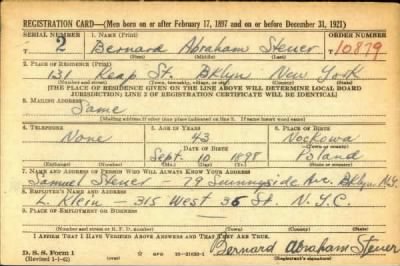 REGISTRATION CARD—(Men born on or after February 17, 1897 and on or before December 31, 1921)
SERIAL NUMBER 1. NAME (Print) ORDER NUMBER
T 2 Bernard Abraham Steuer T 10879
(First) (Middle) (Last)
2. PLACE OF RESIDENCE (Print)
131 Keap St. Bklyn New York
(Number and street) (Town, township, village, or city) (County) (State)
[THE PLACE OF RESIDENCE GIVEN ON THE LINE ABOVE WILL DETERMINE LOCAL BOARD
JURISDICTION; LINE 2 OF REGISTRATION CERTIFICATE WILL BE IDENTICAL]
3. MAILING ADDRESS
Same
[Mailing address if other than place indicated on line 2. If same insert word same]
4. TELEPHONE 5. AGE IN YEARS 6. PLACE OF BIRTH
None 43
DATE OF BIRTH (Town or county)
Sept. 10 1898 Poland
(Exchange) (Number) (Mo.) (Day) (Yr.) (State or country)
7. NAME AND ADDRESS OF PERSON WHO WILL ALWAYS KNOW YOUR ADDRESS
Samuel Steuer — 79 Sunnyside Ave. Bklyn. N.Y.
8. EMPLOYER'S NAME AND ADDRESS
L. Klein — 315 West 36 St. N.Y.C.
9. PLACE OF EMPLOYMENT OR BUSINESS
(Number and street or R. F. D. number) (Town) (County) (State)
I AFFIRM THAT I HAVE VERIFIED ABOVE ANSWERS AND THAT THEY ARE TRUE.
D. S. S. Form 1 Bernard Abraham Steuer
(Revised 1-1-42) (over)